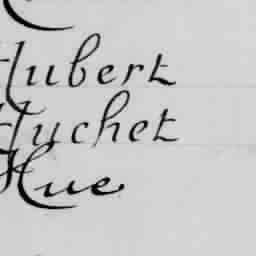 Hubert
Huchet
Hue